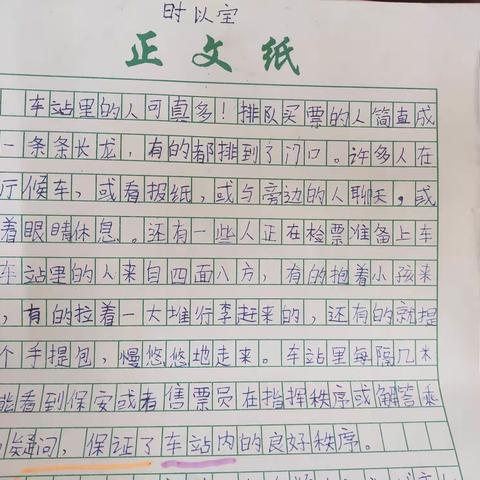 时以宝
正文纸
车站里的人可真多！排队买票的人简直成
一条条长龙，有的都排到了门口。许多人在
厅候车，或看报纸，或与旁边的人聊天，或
着眼睛休息。还有一些人正在检票准备上车
车站里的人来自四面八方，有的抱着小孩来
，有的拉着一大堆行李赶来的，还有的就提
个手提包，慢悠悠地走来。车站里每隔几米
能看到保安或者售票员在指挥秩序或解答乘
疑问，保证了车站内的良好秩序。